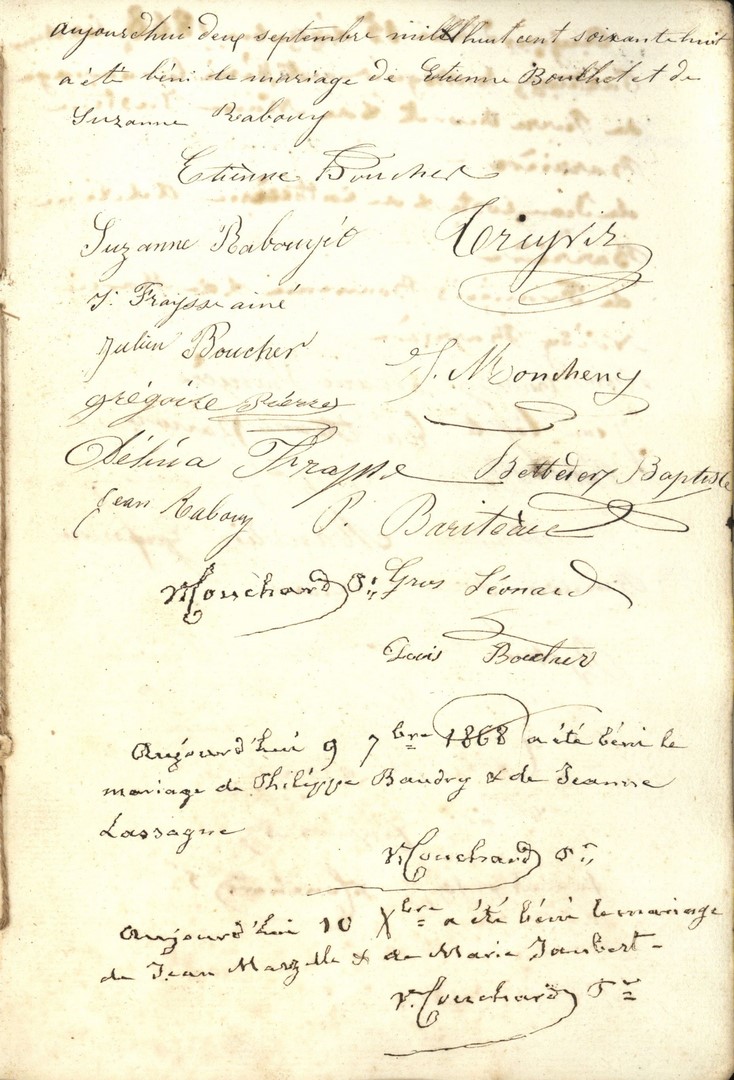 aujourdhui deux septembre mill huit cent soixante huit
a été béni le mariage de Etienne Bouchet et de
Suzanne Rabouy
Etienne Boucher
Suzanne Rabouyé
J. Fraysse ainé
Julien Boucher
J. Moncheny
grégoire Pierre
Délina Betbeder Baptiste
Jean Rabouy P. Bariteau
Mouchard Gros Léonard
Louis Boucher
Aujourd'hui 9 7bre 1868 a été béni le
mariage de Philippe Baudry & de Jeanne
Lassagne
Mouchard Pr
Aujourd'hui 10 Xbre a été béni le mariage
de Jean Marzelle & de Marie Jaubert
Mouchard Pr